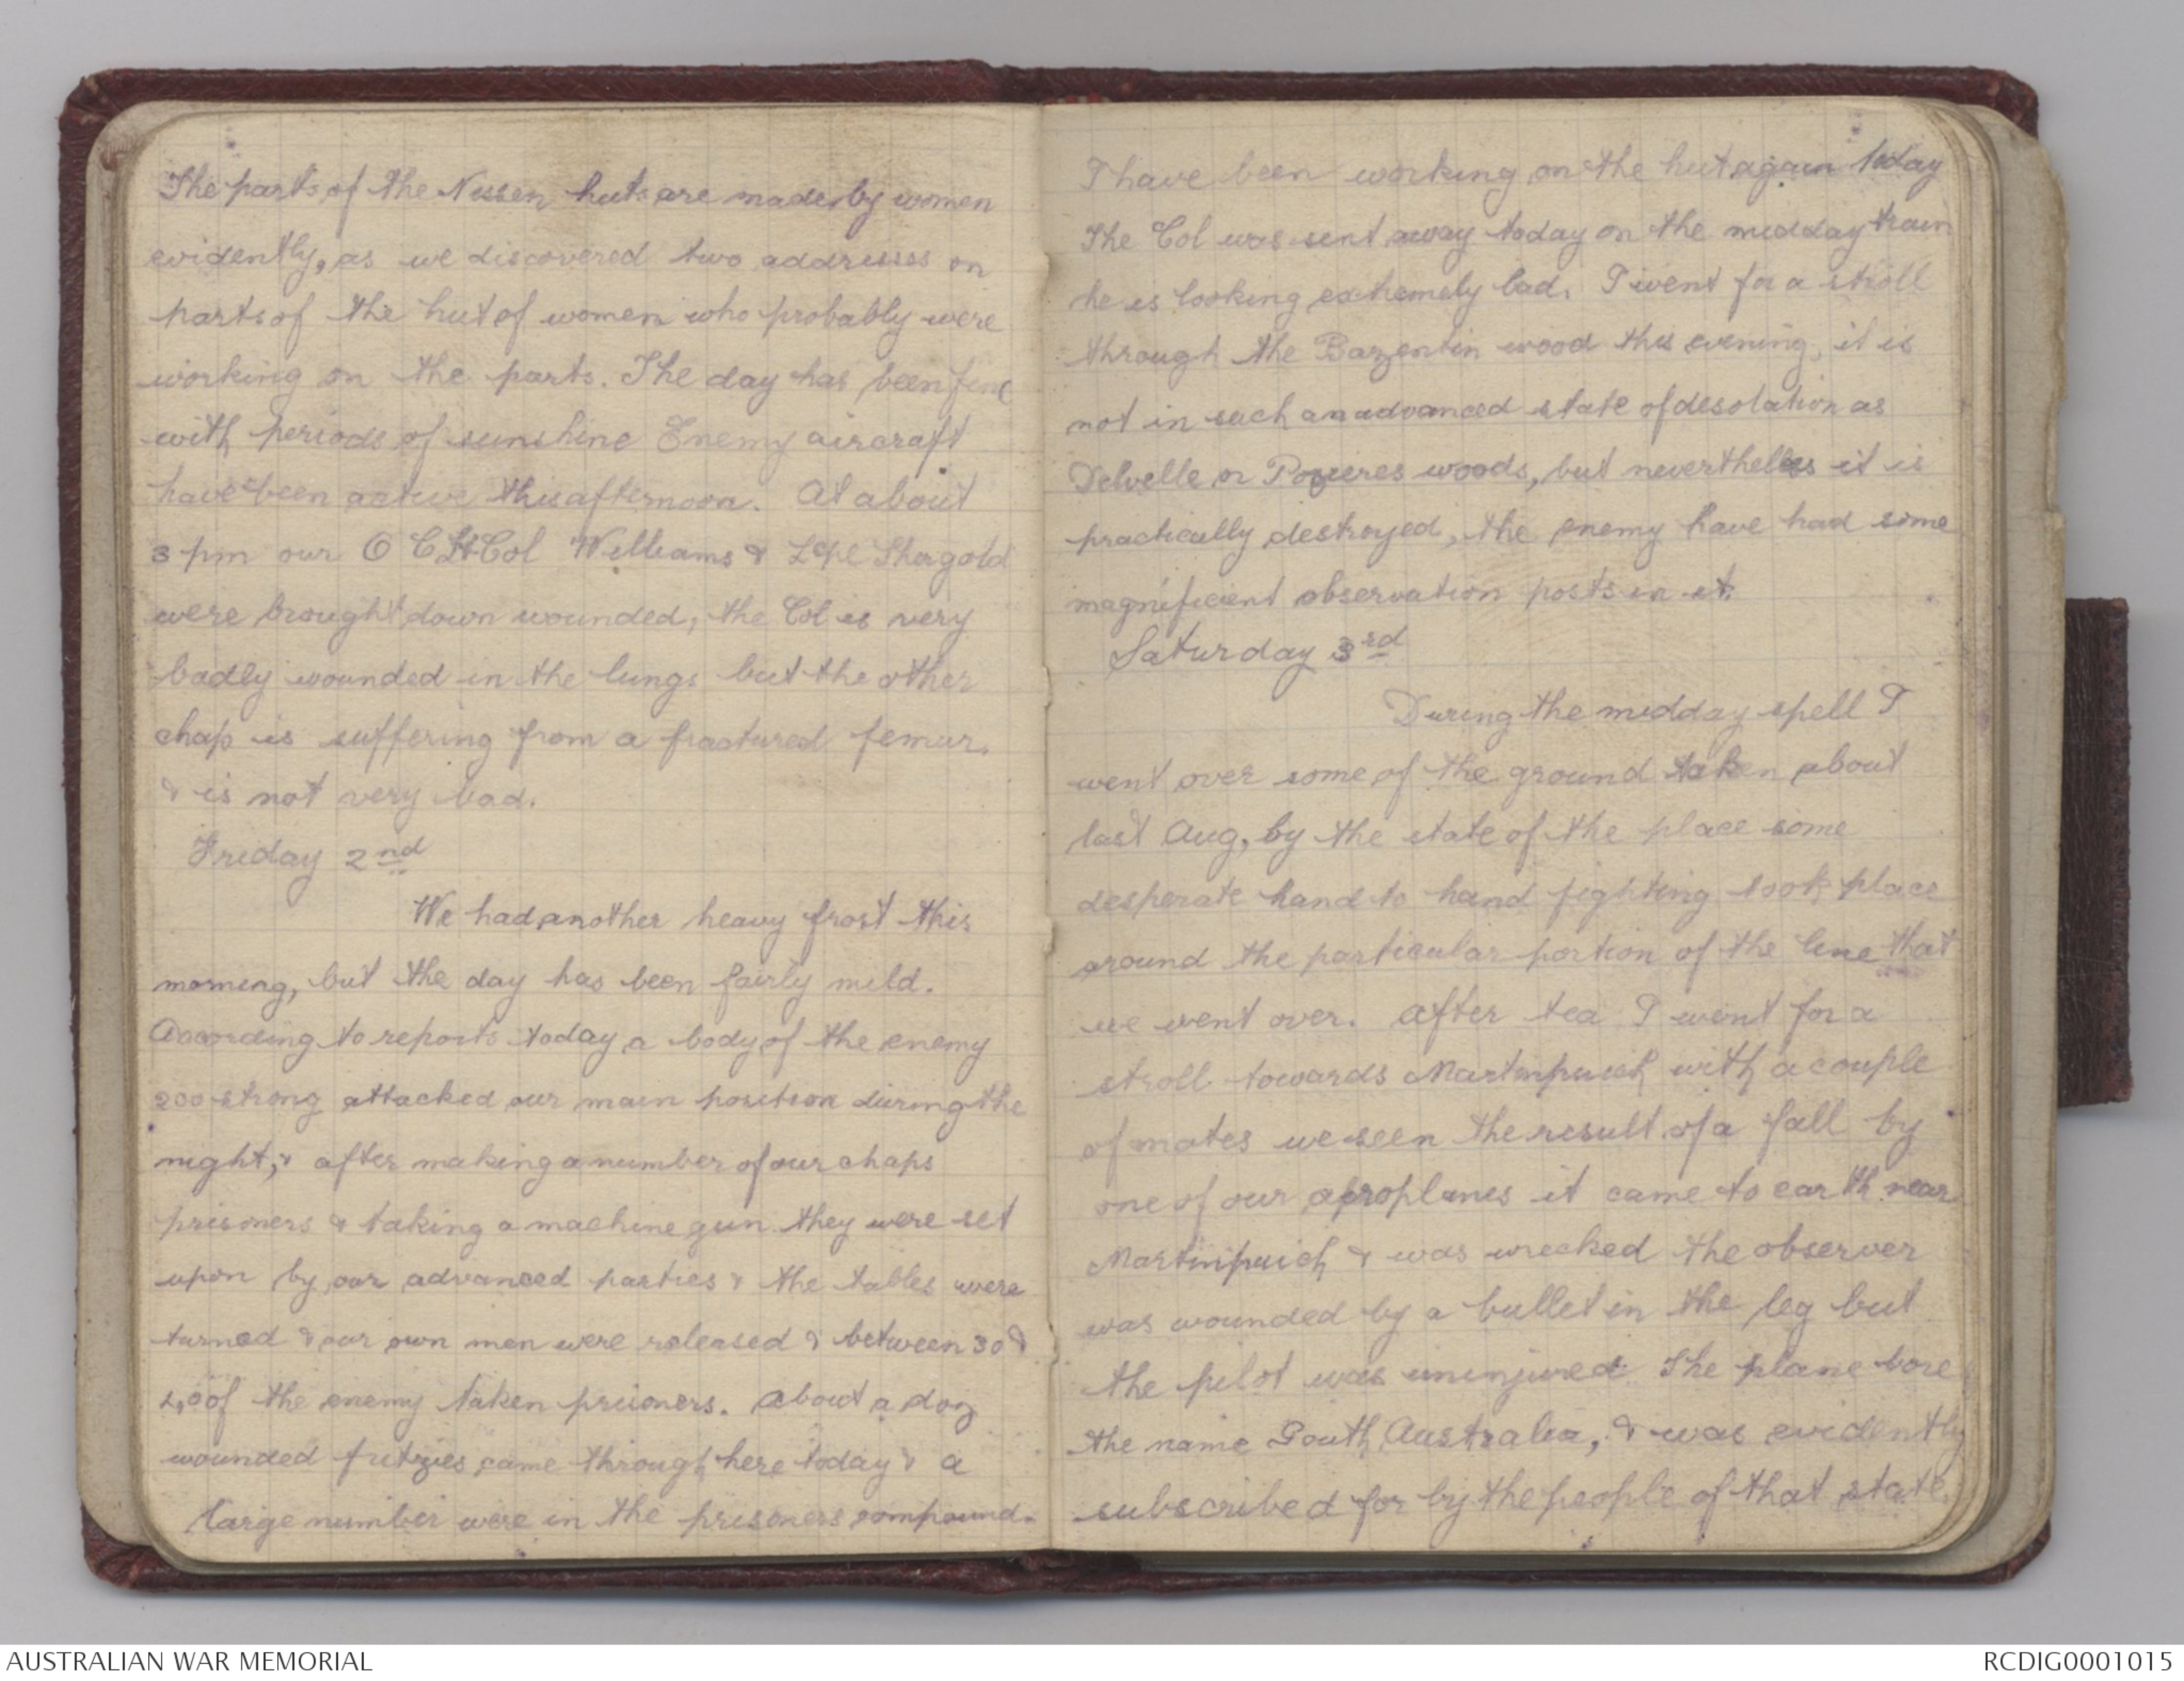 The parts of the Nissen huts are made by women
evidently, as we discovered two addresses on
parts of the hut of women who probably were
working on the parts. The day has been fine
with periods of sunshine Enemy aircraft
have been active this afternoon. At about
3 pm our O C Lt Col Williams & L Cpl Shergold
were brought down wounded, the Col is very
badly wounded in the lungs but the other
chap is suffering from a fractured femur.
& is not very bad.
Friday 2nd
We had another heavy frost this
morning, but the day has been fairly mild.
According to reports today a body of the enemy
200 strong attacked our main position during the
night, & after making a number of our chaps
prisoners & taking a machine gun they were set
upon by our advanced parties & the tables were
turned & our own men were released & between 30 &
40 of the enemy taken prisoners. About a doz
wounded fritzies came through here today & a
large number were in the prisoners compound.
I have been working on the hut again today
The Col was sent away today on the midday train
he is looking extremely bad. I went for a stroll
through the Bazentin wood this evening, it is
not in such an advanced state of desolation as
Delvelle or Pozieres woods, but nevertheless it is
practically destroyed, the enemy have had some
magnificient observation posts in it.
Saturday 3rd
During the midday spell I
went over some of the ground taken about
last Aug, by the state of the place some
desperate hand to hand fighting took place
around the particular portion of the line that
we went over. After tea I went for a
stroll towards Martinpuich with a couple
of mates we seen the result of a fall by
one of our aeroplanes it came to earth near
Martinpuich & was wrecked the observer
was wounded by a bullet in the leg but
the pilot was uninjured. The plane bore
the name South Australia, & was evidently
subscribed for by the people of that state.
AUSTRALIAN WAR MEMORIAL
RCDIG0001015